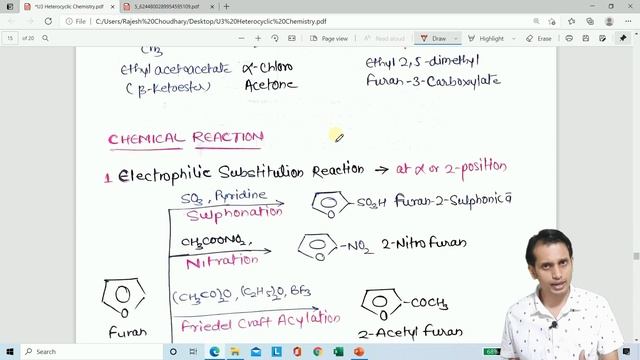 *U3 Heterocyclic Chemistry.pdf
5_6244800289954595109.pdf
File | C:/Users/Rajesh%20Choudhary/Desktop/U3%20Heterocyclic%20Chemistry.pdf
15 of 20
Page view
Read aloud
Draw
Highlight
Erase
CH3
Ethyl acetoacetate α-Chloro Ethyl 2,5-dimethyl
(β-Ketoester) Acetone Furan-3-Carboxylate
CHEMICAL REACTION
1 Electrophilic Substitution Reaction → at α or 2-position
SO3, Pyridine
Sulphonation
SO3H Furan-2-Sulphonic ā
CH3COONO2,
Nitration
NO2 2-Nitro Furan
(CH3CO)2O, (C2H5)2O, BF3
Friedel Craft Acylation
COCH3
Furan
2-Acetyl Furan
68%